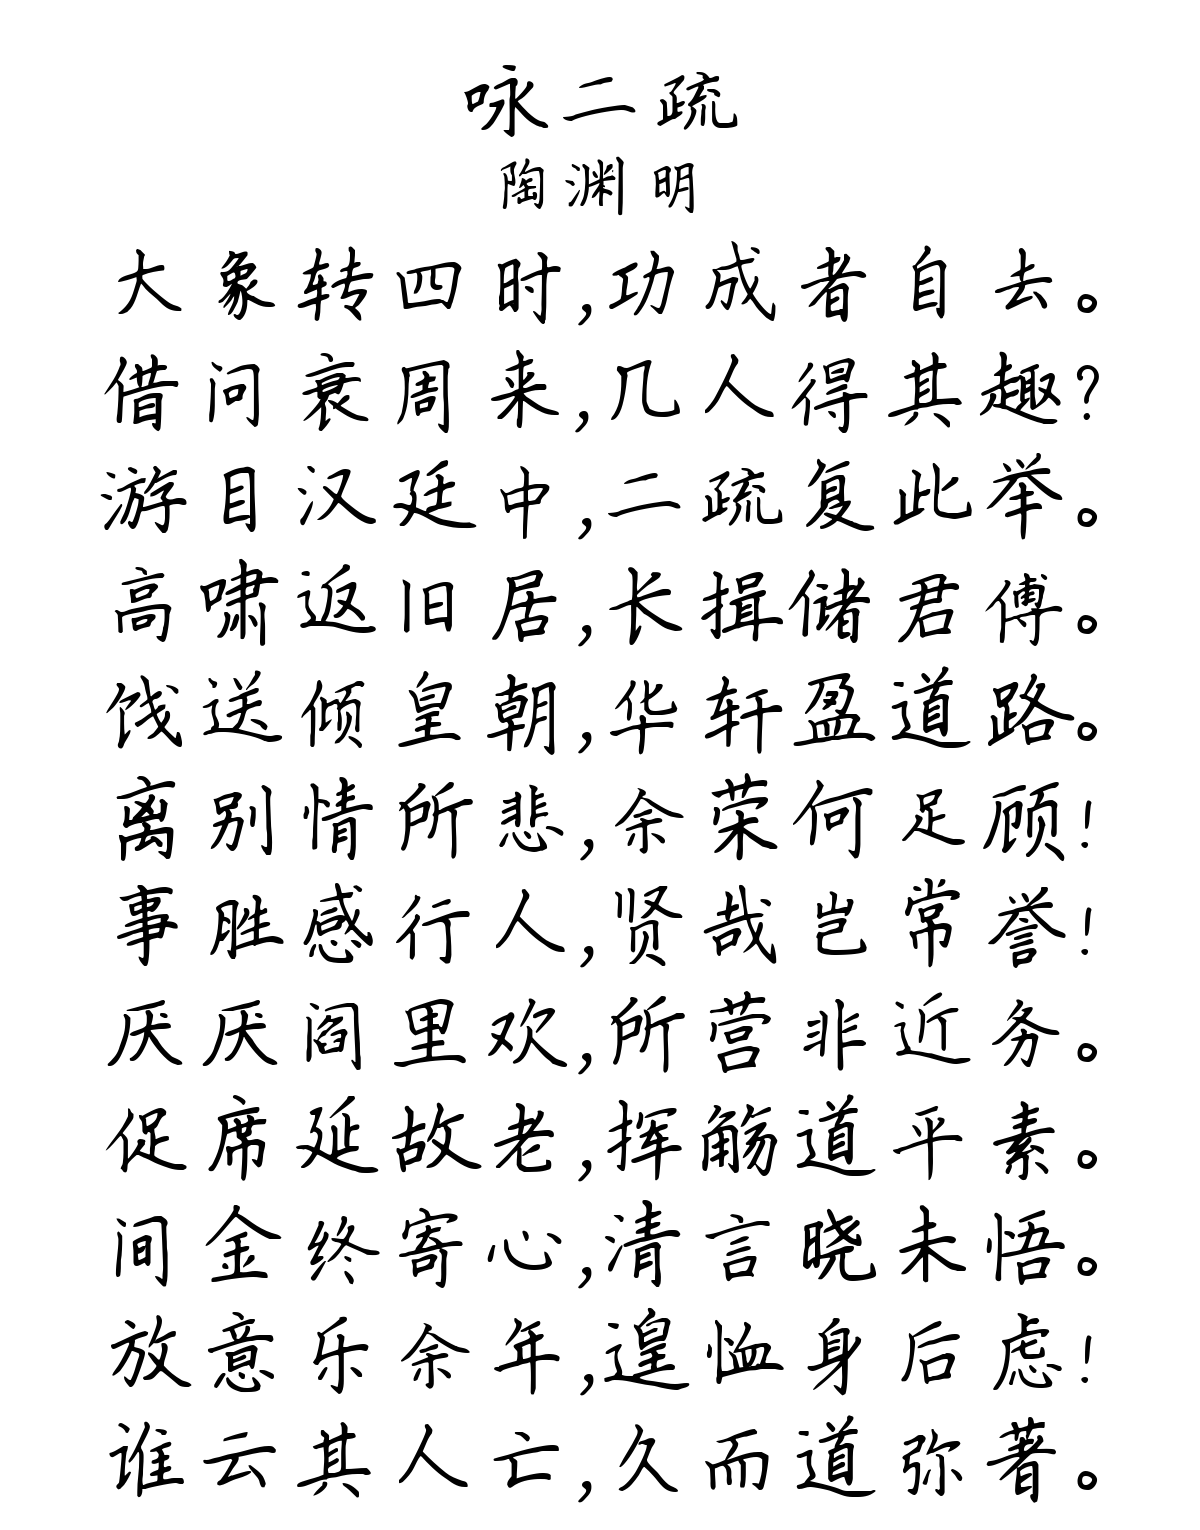 咏二疏
陶渊明
大象转四时,功成者自去。
借问衰周来,几人得其趣?
游目汉廷中,二疏复此举。
高啸返旧居,长揖储君傅。
饯送倾皇朝,华轩盈道路。
离别情所悲,余荣何足顾!
事胜感行人,贤哉岂常誉!
厌厌阎里欢,所营非近务。
促席延故老,挥觞道平素。
间金终寄心,清言晓未悟。
放意乐余年,遑恤身后虑!
谁云其人亡,久而道弥著。